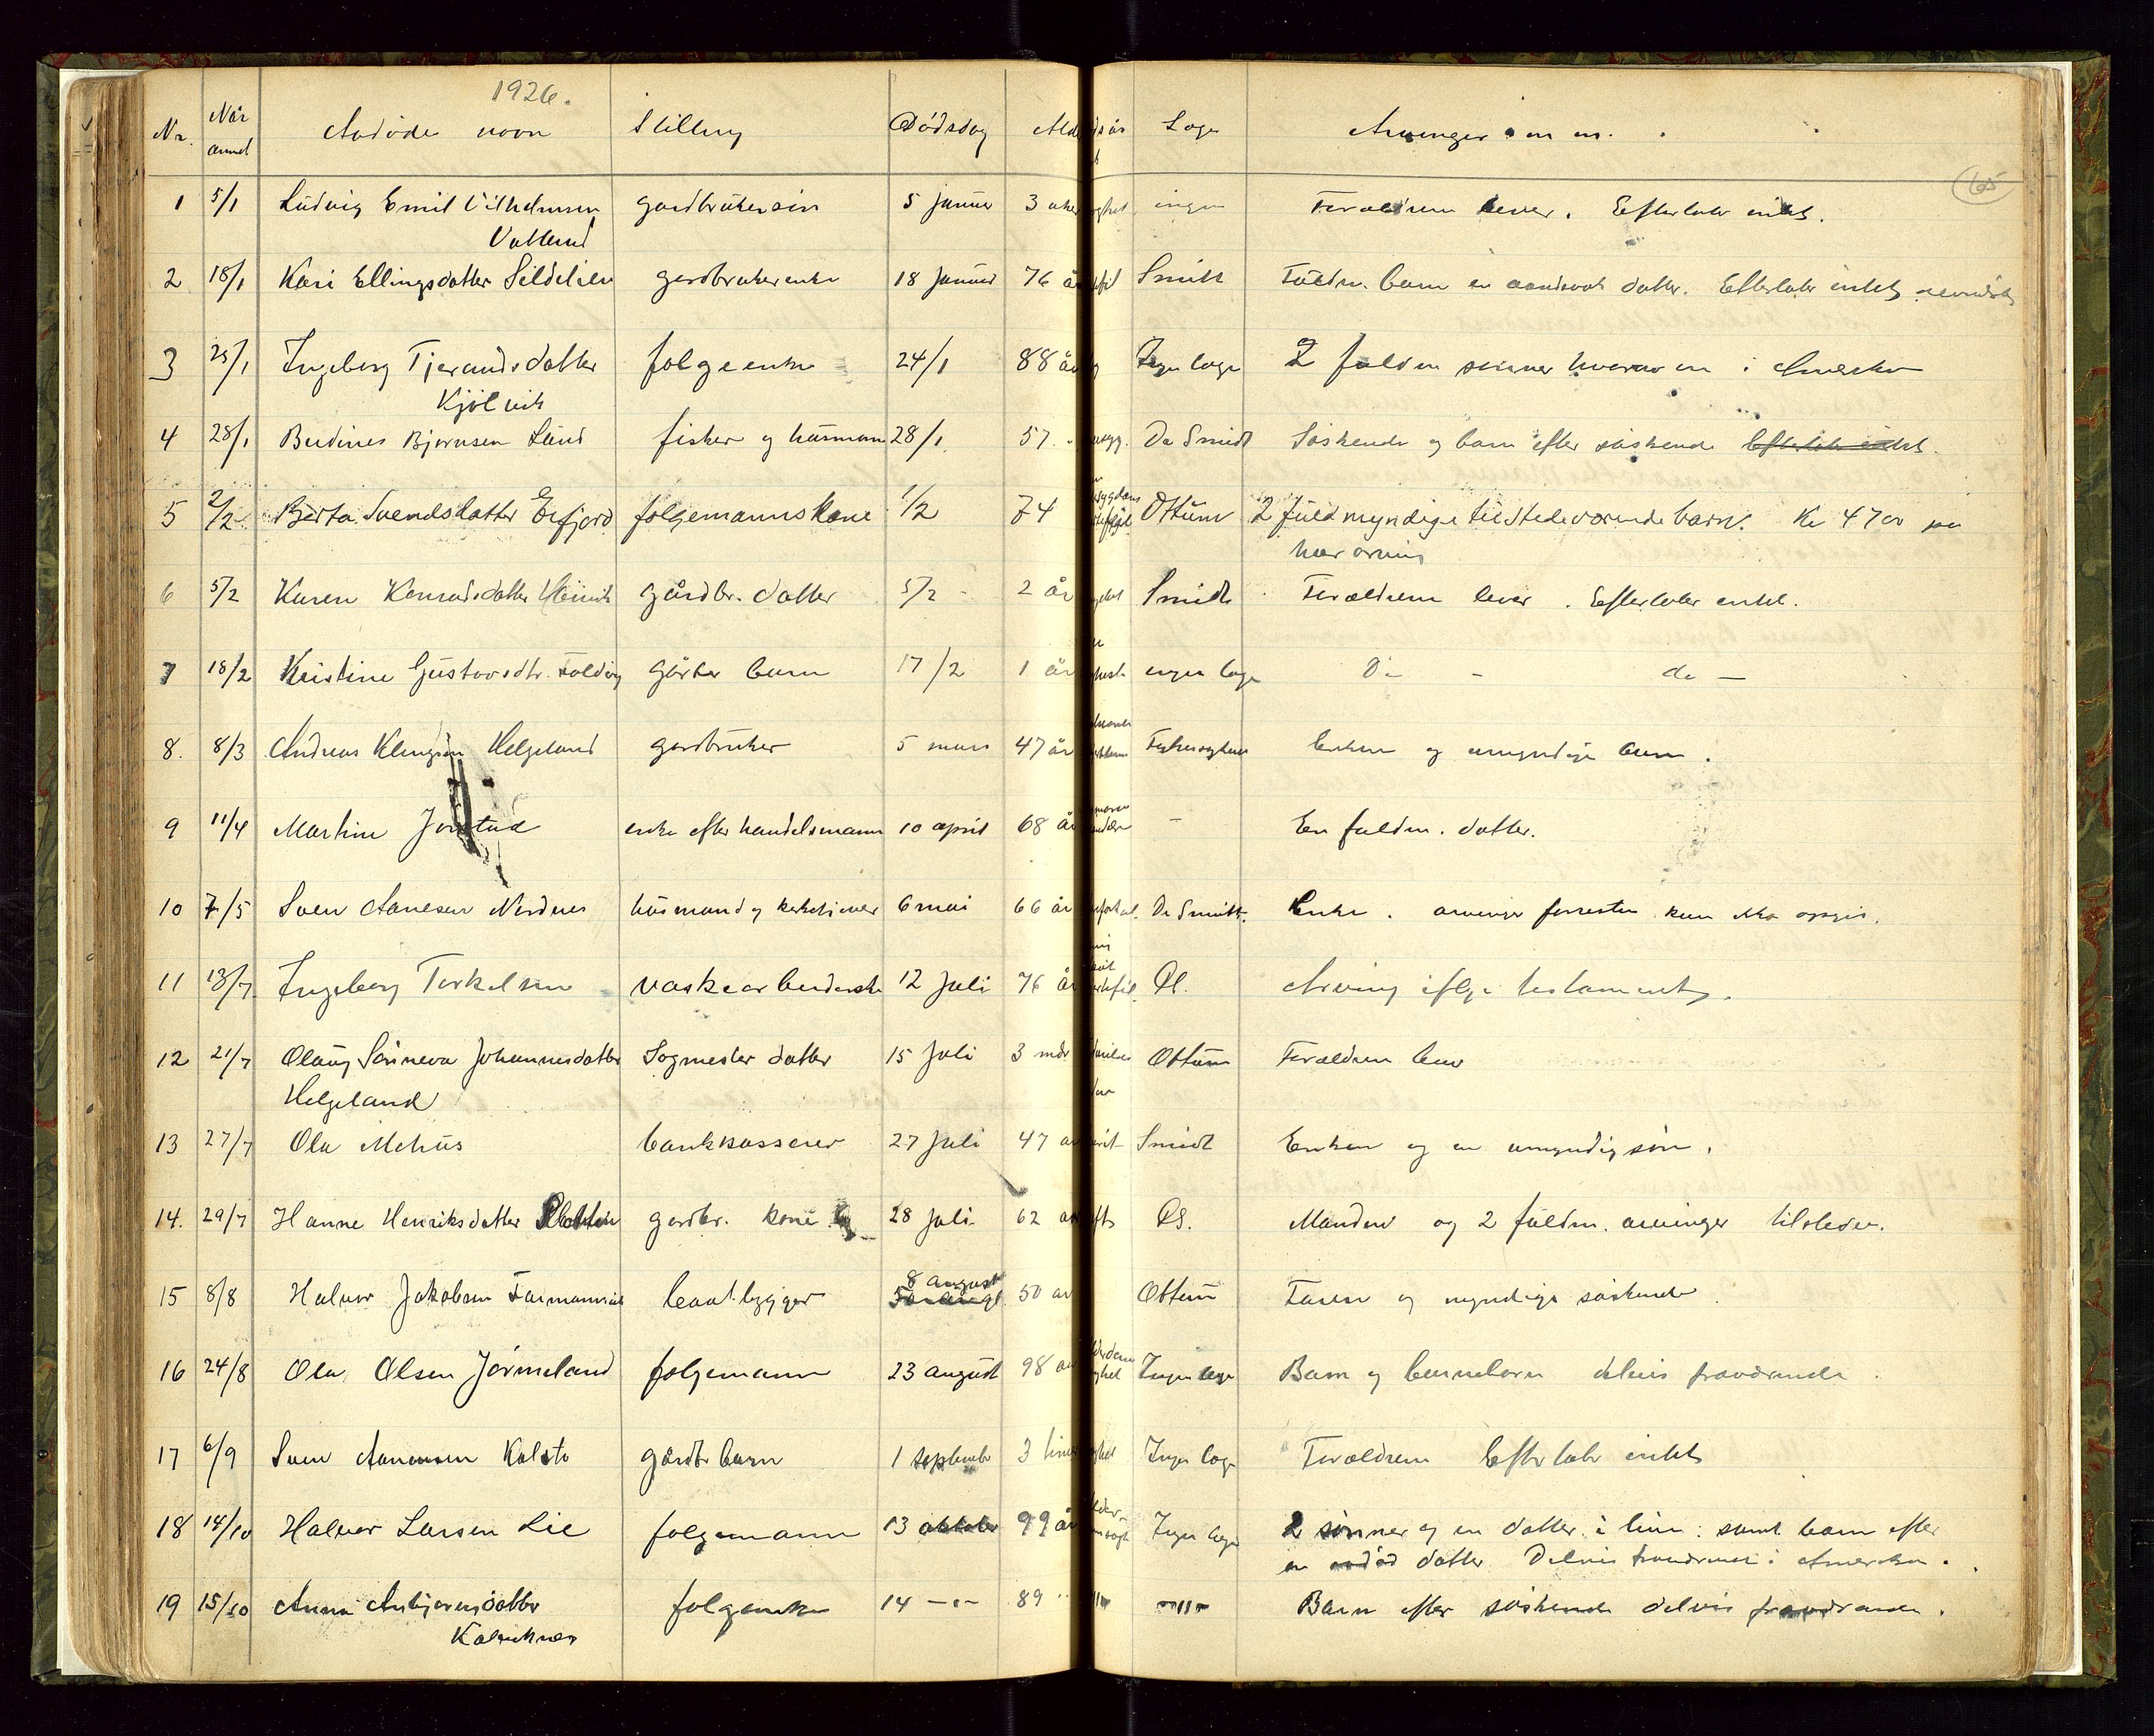 1926.
Nr. Når anmel Avdødes navn Stilling Dødsdag Alde Læge Arvinger m m.
65
1 5/1 Ludvig Emil Vilhelmsen gardbrukersøn 5 januar 3 uker ingen Forældrene lever. Efterlater intet.
Vatland
2 18/1 Kari Ellingsdatter Sildelien gardbrukerenke 18 januar 76 år Smitt Fuldm. barn en datter. Efterlater intet
3 25/1 Ingeborg Tjerandsdatter folgeenke 24/1 88 år Ingen læge 2 fuldm sønner hvorav en i Amerika
Kjølvik
4 28/1 Berdines Bjørnsen Lund fisker og husmann 28/1. 57 Dr Smidt Søskende og barn efter søskende Efterlater intet.
5 2/2 Berta Svendsdatter Erfjord folgemannskone 1/2 74 Ottum 2 fuldmyndige tilstedeværende barn. Kr 4700 på
hver arving
6 5/2 Karen Konradsdatter gårdbr. datter 5/2 2 år Smidt Forældrene lever. Efterlater intet.
7 18/2 Kristine Gustavsdtr. Foldøy gårbr barn 17/2 1 år ingen læge Do - do —
8. 8/3 Andreas Klengsen Helgeland gardbruker 5 mars 47 år Enken og umyndige barn.
9 11/4 Martine Jonstad enke efter handelsmann 10 april 68 år - En fuldm. datter.
10 7/5 Sven Aanesen Nordnes husmand og kirketjener 6 mai 66 år Dr Smitt. Enke. arvinger forresten kan ikke opgis.
11 13/7 Ingeborg Torkelsen vaskearbeiderske 12 juli 76 år Do. Arving ifølge testament.
12 21/7 Olaug Sønneva Johannesdatter Sogmester datter 15 juli 3 mdr Ottum Forældrene lever
Helgeland
13 27/7 Ola Mehus bankkasserer 27 juli 47 år Smidt Enken og en umyndig søn.
14. 29/7 Hanne Henriksdatter gardbr. kone 28 juli 62 år Do. Manden og 2 fuldm. arvinger tilstede.
8 august
15 8/8 Halvor Jakobsen baatbygger 50 år Ottum Faren og myndige søskende.
16 24/8 Ola Olsen Jørmeland folgemann 23 august 98 år Ingen læge Barn og barnebarn delvis fraværende.
17 6/9 Sven Aanensen Kalstø gårdbr barn 1 september 3 timer Ingen læge Forældrene Efterlater intet
18 14/10 Halvor Larsen Lie folgemann 13 oktober 99 år Ingen læge 2 sønner og en datter i live: samt barn efter
en avdød datter Delvis fraværende i Amerika.
19 15/10 Anna Asbjørnsdatter folgeenke 14 —"— 89 " —"— Barn efter søskende delvis fraværende.